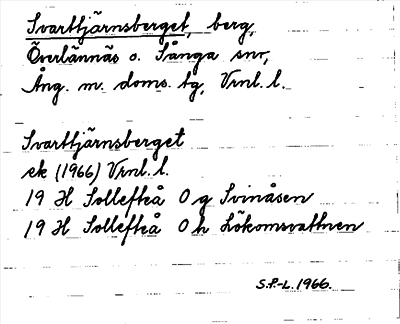 Svarttjärnsberget, berg,
Överlännäs o. Sånga snr,
Ång. m. doms. tg, Vrnl. l.
Svarttjärnsberget
ek (1966) Vrnl. l.
19 H Sollefteå 0 g Svinåsen
19 H Sollefteå 0 h Lökomsvattnen
S.P-L. 1966.